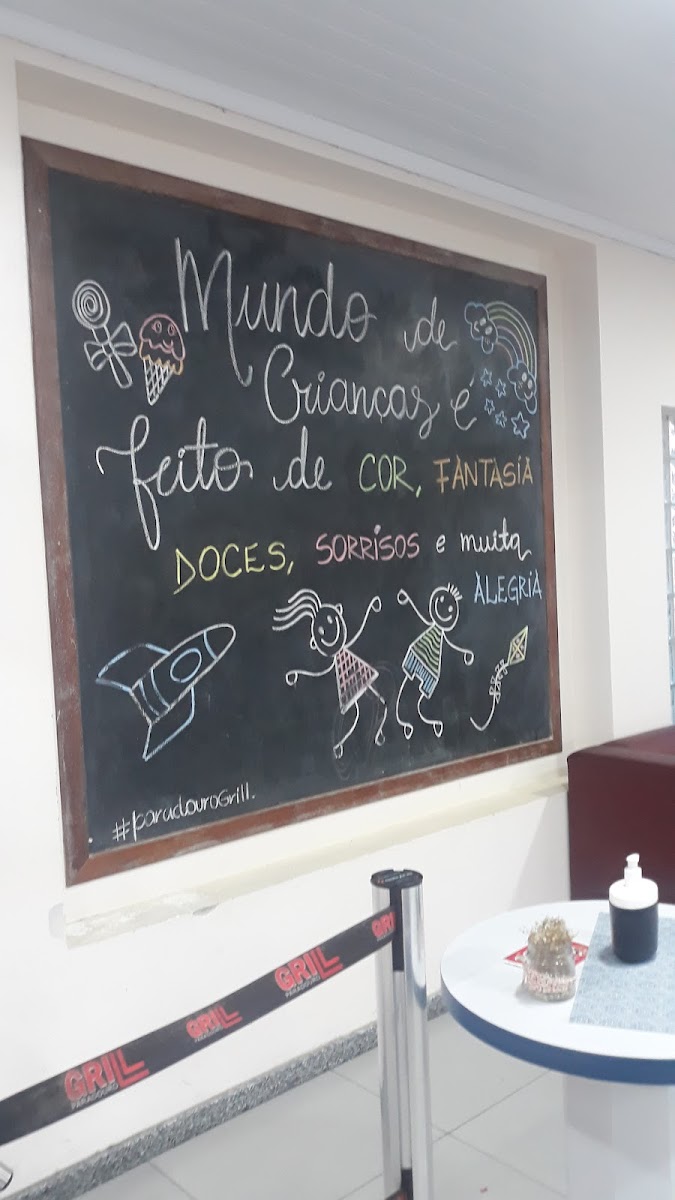 Mundo de
Crianças é
feito de COR, FANTASIA
DOCES, SORRISOS e muita
ALEGRIA
#paradouroGrill.
GRILL
PARADOURO
GRILL
PARADOURO
GRILL
PARADOURO
GRI